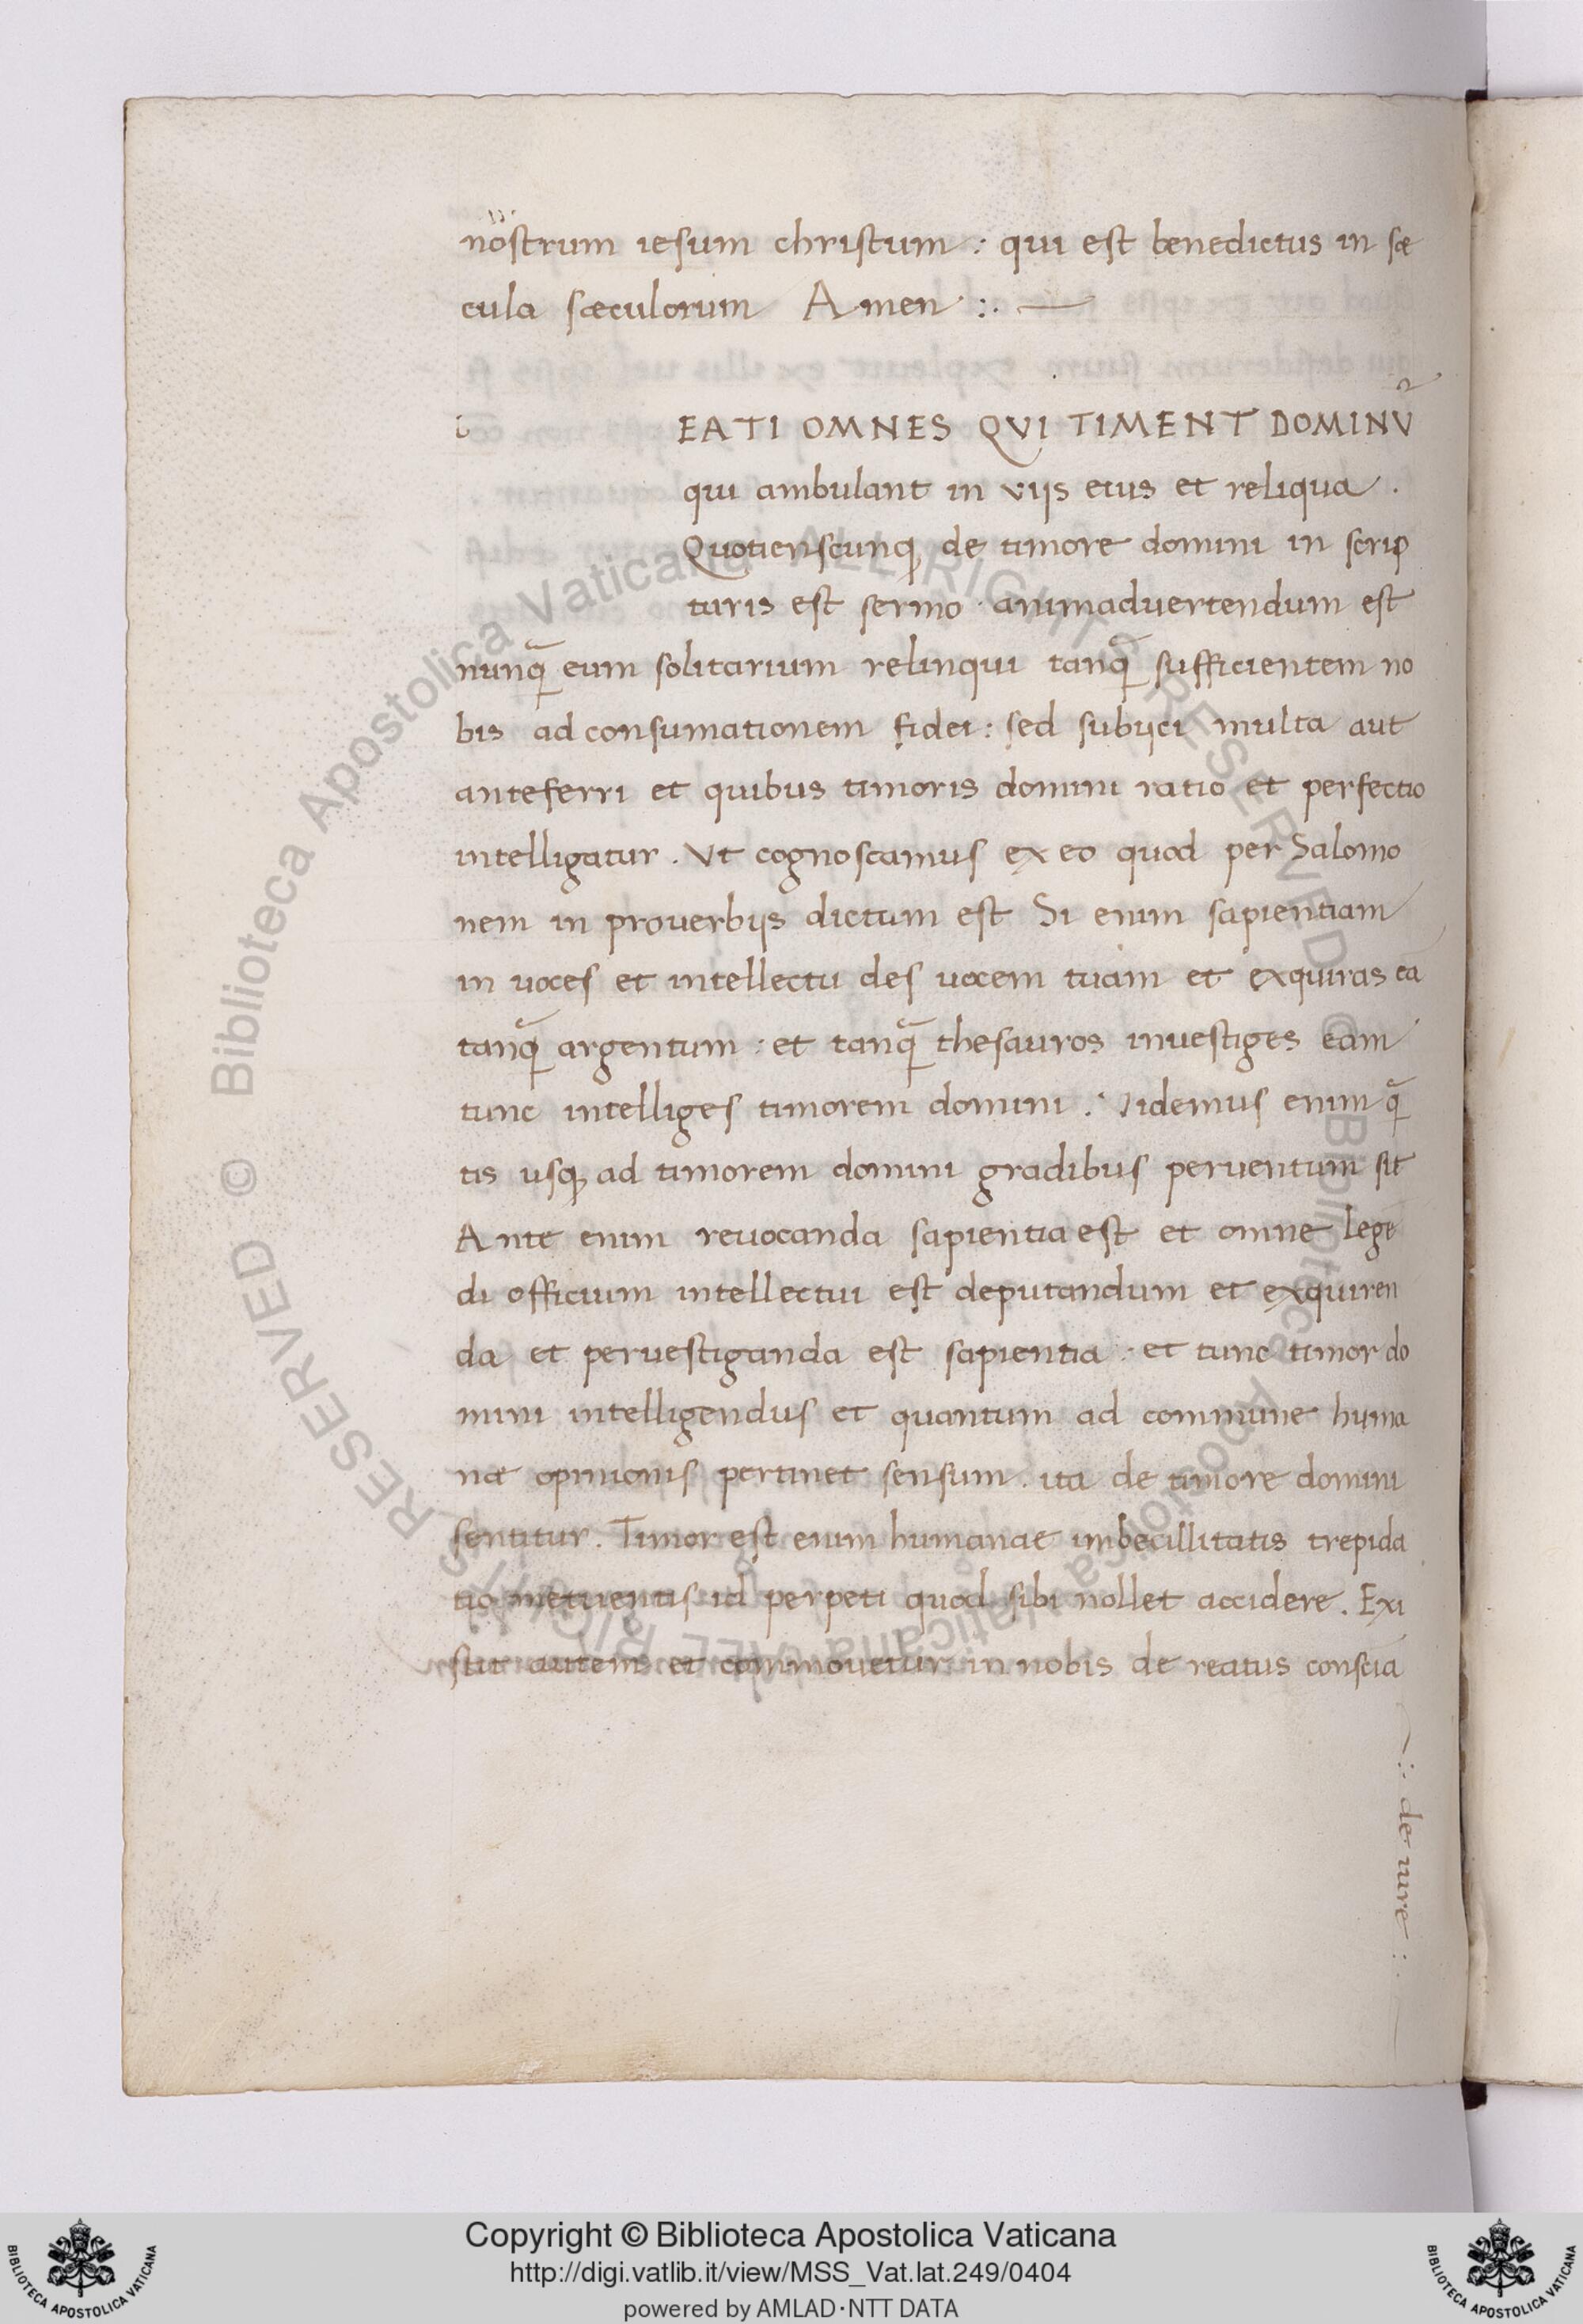 nostrum iesum christum : qui est benedictus in sæ
cula sæculorum Amen :. —
b EATI OMNES QVI TIMENT DOMINṼ
qui ambulant in viijs eius et reliqua .
Quotienscunq, de timore domini in scrip
turis est sermo · animaduertendum est
nunq̃ eum solitarium relinqui tanq̃ sufficientem no
bis ad consumationem fidei : sed subijci multa aut
anteferri et quibus timoris domini ratio et perfectio
intelligatur . Vt cognoscamus ex eo quod per Salomo
nem in prouerbijs dictum est Si enim sapientiam
in uoces et intellectu des uocem tuam et exquiras eã
tanq̃ argentum : et tanq̃ thesauros inuestiges eam
tunc intelliges timorem domini . Videmus enim q̃
tis usq, ad timorem domini gradibus peruentum sit
Ante enim reuocanda sapientia est et omne legẽ
di officium intellectui est deputandum et exquiren
da et peruestiganda est sapientia : et tunc timor do
mini intelligendus et quantum ad commune huma
næ opinionis pertinet sensum . ita de timore domini
sentitur . Timor est enim humanae imbecillitatis trepida
tio metuentis id perpeti quod sibi nollet accidere . Exi
stit autem et commouetur in nobis de reatus conscia
:· de iure :
RESERVED © Biblioteca Apostolica Vaticana ALL RIGHTS RESERVED © Biblioteca Apostolica Vaticana ALL RIGHTS
Copyright © Biblioteca Apostolica Vaticana
http://digi.vatlib.it/view/MSS_Vat.lat.249/0404
powered by AMLAD·NTT DATA
BIBLIOTECA APOSTOLICA VATICANA
BIBLIOTECA APOSTOLICA VATICANA